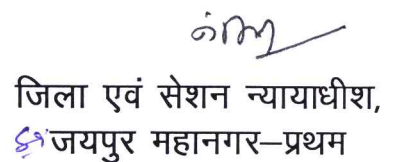 जिला एवं सेशन न्यायाधीश,
जयपुर महानगर–प्रथम